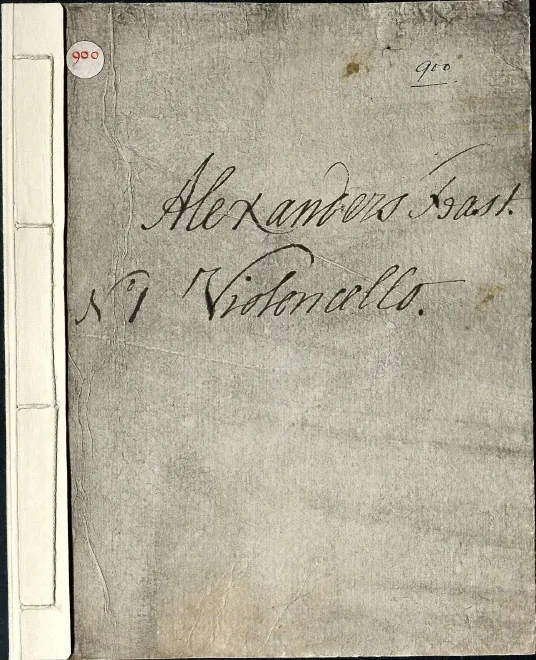 900
900
Alexanders Feast.
No 1 Violoncello.